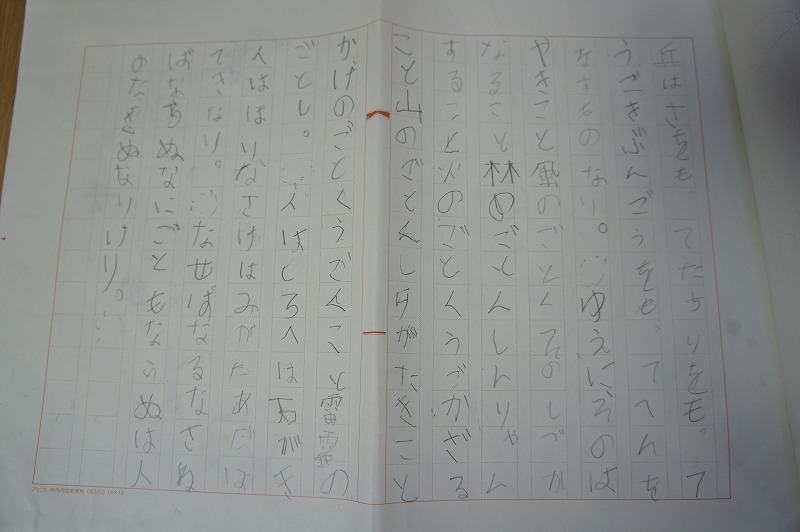 兵はさをも。てたちりをも。て
うごきぶんごうをも。てへんを
なすものなり。ゆえにそのは
やきこと風のごとくそのしづか
なること林のごとくしんりゃく
すること火のごとくうごかざる
こと山のごとくしりがたきこと
かげのごとくうごくこと雷霆の
ごとし。人はしろ人は石がき
人はほり、なさけはみかたあだは
てきなり。なせばなるなさね
ばならぬなにごともならぬは人
のなさぬなりけり。